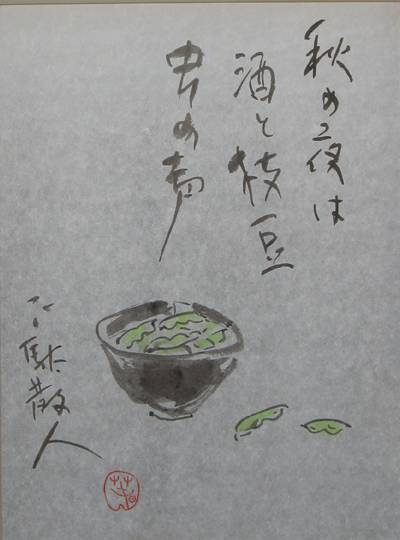 秋の夜は
酒と枝豆
虫の声
下駄散人